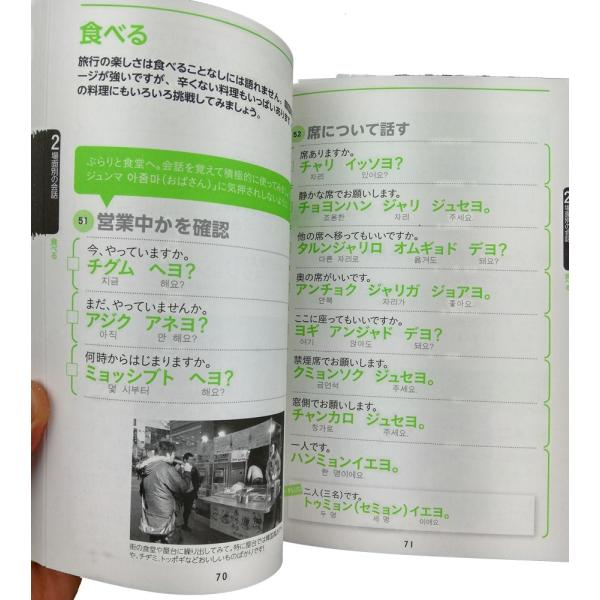 食べる
旅行の楽しさは食べることなしには語れません。
ージが強いですが、辛くない料理もいっぱいあります
の料理にもいろいろ挑戦してみましょう。
ぶらりと食堂へ。会話を覚えて積極的に使ってみ
ジュンマ 아줌마(おばさん)」に気押されしないよう
2 場面別の会話
食べる
51 営業中かを確認
今、やっていますか。
チグム ヘヨ?
지금 해요?
まだ、やっていませんか。
アジク アネヨ?
아직 안 해요?
何時からはじまりますか。
ミョッシブト ヘヨ?
몇 시부터 해요?
街の食堂や屋台に繰り出してみて。特に屋台では
や、チヂミ、トッポギなどおいしいものばかりです!
70
52 席について話す
席ありますか。
チャリ イッソヨ?
자리 있어요?
静かな席でお願いします。
チョヨンハン ジャリ ジュセヨ。
조용한 자리 주세요.
他の席へ移ってもいいですか。
タルンジャリロ オムギョド デヨ?
다른 자리로 옮겨도 돼요?
奥の席がいいです。
アンチョク ジャリガ ジョアヨ。
안쪽 자리가 좋아요.
ここに座ってもいいですか。
ヨギ アンジャド デヨ?
여기 앉아도 돼요?
禁煙席でお願いします。
クミョンソク ジュセヨ。
금연석 주세요.
窓側でお願いします。
チャンカロ ジュセヨ。
창가로 주세요.
一人です。
ハンミョンイエヨ。
한 명이에요.
二人(三名)です。
トゥミョン(セミョン)イエヨ。
두 명 세 명 이에요
71
2